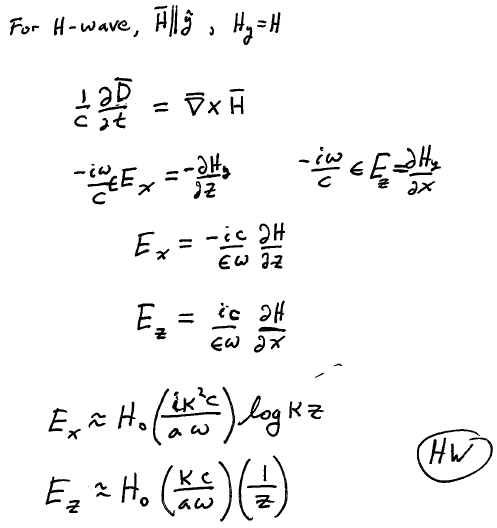 For H-wave, H̄∥ŷ, H_y=H
1/c ∂D̄/∂t = ∇̄×H̄
-iω/c ϵE_x = -∂H_y/∂z    -iω/c ϵE_z = ∂H_y/∂x
E_x = -ic/ϵω ∂H/∂z
E_z = ic/ϵω ∂H/∂x
E_x ≈ H_o (iK²c/aω) log Kz
E_z ≈ H_o (Kc/aω)(1/z)
HW